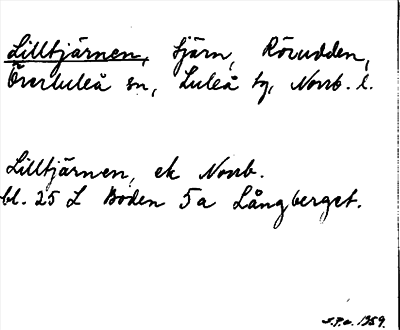 Lilltjärnen, tjärn, Rövudden,
Överluleå sn, Luleå tg, Norrb. l.
Lilltjärnen, ek Norrb.
bl. 25 L Boden 5a Långberget.
1959.